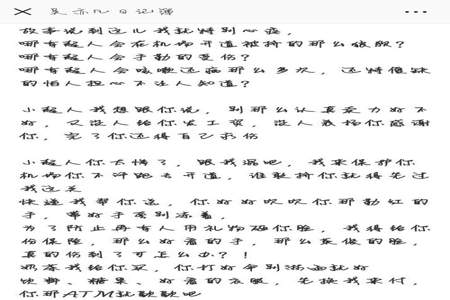 吴亦凡日记簿
故事说到这儿我就特别心疼，
哪有敌人会在机场开道被挤的那么狼狈？
哪有敌人会手勤的受伤？
哪有敌人会咳嗽还病那么多次，还特傲娇
的怕人担心不让人知道？
小敌人我想跟你说，别那么认真卖力好不
好，又没人给你发工资，没人表扬你感谢
你，完了你还得自己养伤
小敌人你太懒了，跟我混吧，我来保护你
机场你不许跑去开道，谁敢挤你就得先过
我这关
快递我帮你送，你好好吹吹你那勤红的
手，带好手套别冻着，
为了防止再有人用礼物砸你脸，我得给你
份保险，那么好看的手，那么呆傲的脸，
真的伤到了可怎么办？！
奶茶我给你买，你打好伞别淋雨就好
饮料、糖果、好看的衣服，先换我来付，
你那ATM就歇歇吧